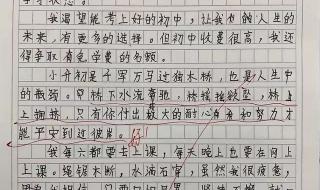 我渴望能考上好的初中，让我有触人生的
未来，有更多的选择。但初中收费很高，我还
得争取有免学费的名额。
小升初是千军万马过独木桥，也是人生中
的瓶颈。只桥下水流奔驰，桥摇摇欲坠，桥上
上拥挤，只有你付出极大的耐心和努力才
能平安到过彼岸。好！
我每六都要去上课，每天晚上也要在网上
上课。绳锯木断，水滴石穿，虽然我很疲惫，